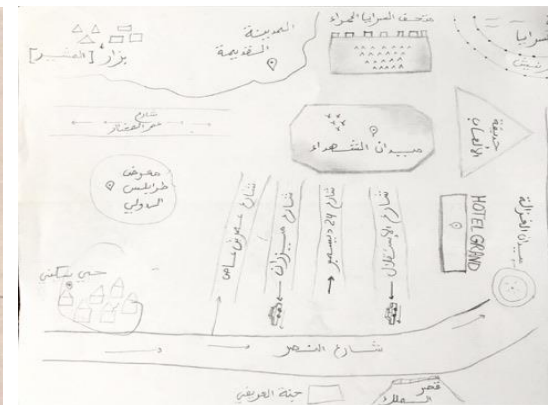 متحف السرايا الحمراء
المدينة
القديمة
بزار [المشير]
السرايا
شارع
عمر المختار
ميدان الشهداء
حديقة
معرض
طرابلس
الدولي
شارع عمرو بن عاص
شارع ميزران
شارع 24 ديسمبر
شارع الاستقلال
HOTEL GRAND
ميدان الغزالة
حي سكني
شارع النصر
قصر
الملك